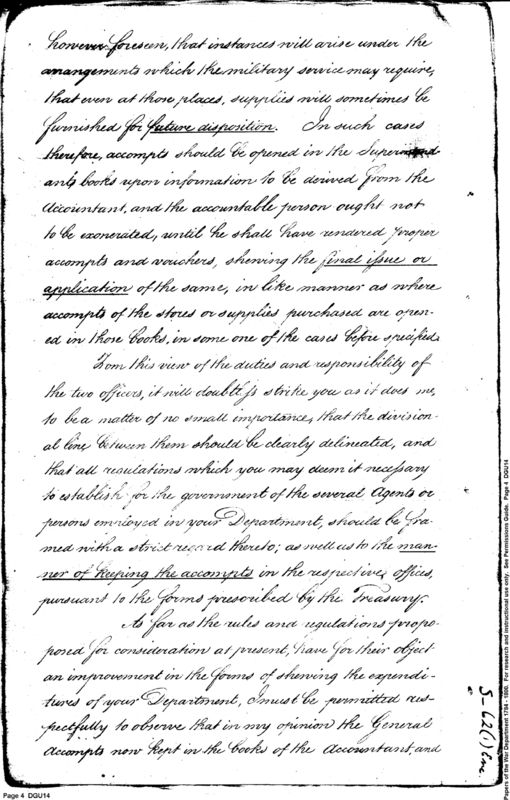 however foreseen, that instances will arise under the
arrangements which the military service may require,
that even at those places, supplies will sometimes be
furnished for future disposition. In such cases
therefore, accompts should be opened in the Superintend
ants books upon information to be derived from the
Accountant, and the accountable person ought not
to be exonerated, until he shall have rendered proper
accompts and vouchers, shewing the final issue or
application of the same, in like manner as where
accompts of the stores or supplies purchased are open-
ed in those books, in some one of the cases before specified.
From this view of the duties and responsibility of
the two officers, it will doubtless strike you as it does me,
to be a matter of no small importance, that the division-
al line between them should be clearly delineated, and
that all regulations which you may deem it necessary
to establish for the government of the several Agents or
persons employed in your Department, should be fra-
med with a strict regard thereto; as well as to the man-
ner of keeping the accompts in the respective offices,
pursuant to the forms prescribed by the Treasury.
As far as the rules and regulations propo-
posed for consideration at present, have for their object
an improvement in the forms of shewing the expendi-
tures of your Department, I must be permitted res-
pectfully to observe that in my opinion the General
Accompts now kept in the books of the Accountant, and
Page 4 DGU14
Papers of the War Department 1784 - 1800. For research and instructional use only. See Permissions Guide. Page 4 DGU14